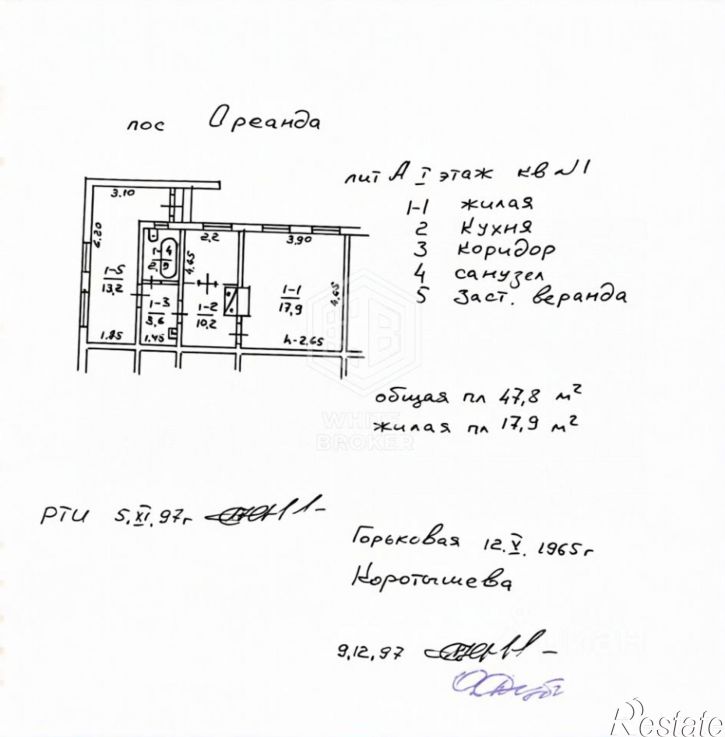 пос Ореанда
лит А I этаж кв №1
1-1 жилая
2 Кухня
3 коридор
4 санузел
5 Заст. веранда
3.10
6.20
1-5
13,2
1.85
1-4
4.65
2.2
1-3
3,6
1.45
1-2
10,2
3.90
1-1
17,9
4.65
h-2.65
общая пл 47,8 м²
жилая пл 17,9 м²
WHITE
BROKER
РТИ 5.XI.97г
Горьковая 12.V.1965г
Коротышева
9,12,97
Restate